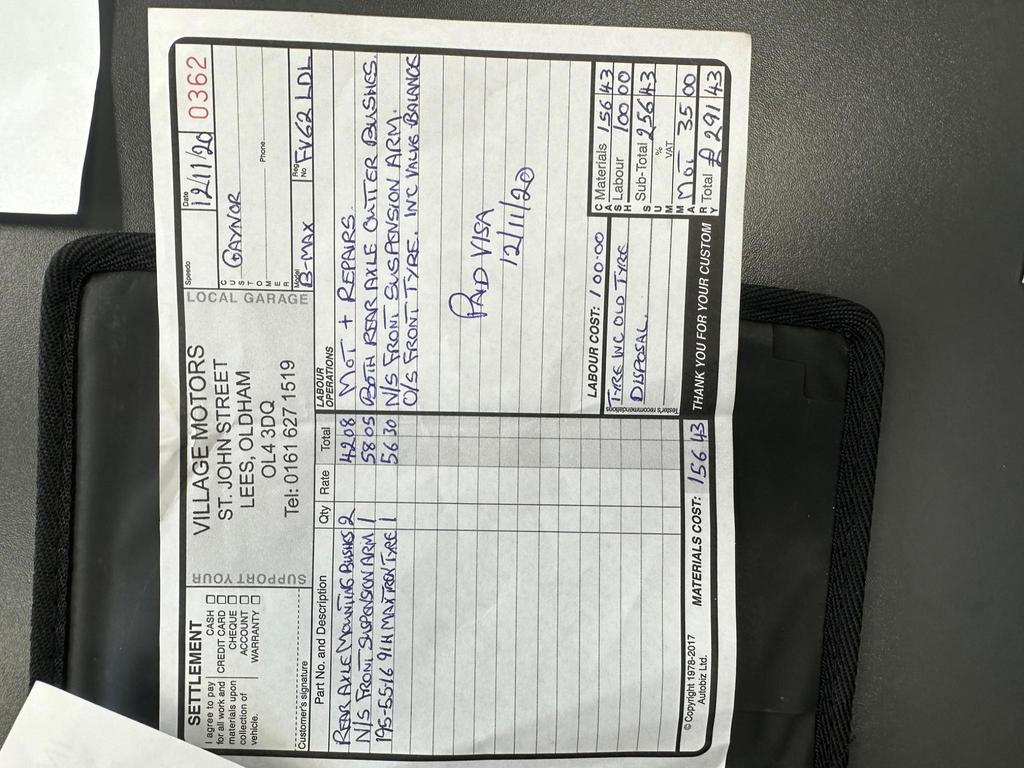 SETTLEMENT
I agree to pay for all work and materials upon collection of vehicle.
CASH
CREDIT CARD
CHEQUE
ACCOUNT
WARRANTY
Customer's signature
SUPPORT YOUR LOCAL GARAGE
VILLAGE MOTORS
ST. JOHN STREET
LEES, OLDHAM
OL4 3DQ
Tel: 0161 627 1519
Speedo
Date 12/11/20
0362
CUSTOMER GAYNOR
Phone
Model B-MAX
Reg No FV62 LDL
Part No. and Description Qty Rate Total
REAR AXLE MOUNTING BUSHES 2 42 08
N/S FRONT SUSPENSION ARM 1 58 05
195-55-16 91H MAXTREK TYRE 1 56 30
MATERIALS COST: 156 43
© Copyright 1978-2017
Autobiz Ltd.
LABOUR OPERATIONS
MOT + REPAIRS.
BOTH REAR AXLE OUTTER BUSHES.
N/S FRONT SUSPENSION ARM.
O/S FRONT TYRE. INC VALVE BALANCE
PAID VISA
12/11/20
LABOUR COST: 100.00
Tester's recommendations
TYRE INC OLD TYRE
DISPOSAL.
THANK YOU FOR YOUR CUSTOM
CASH SUMMARY
Materials 156 43
Labour 100 00
Sub-Total 256 43
% VAT
MOT 35 00
Total £291 43